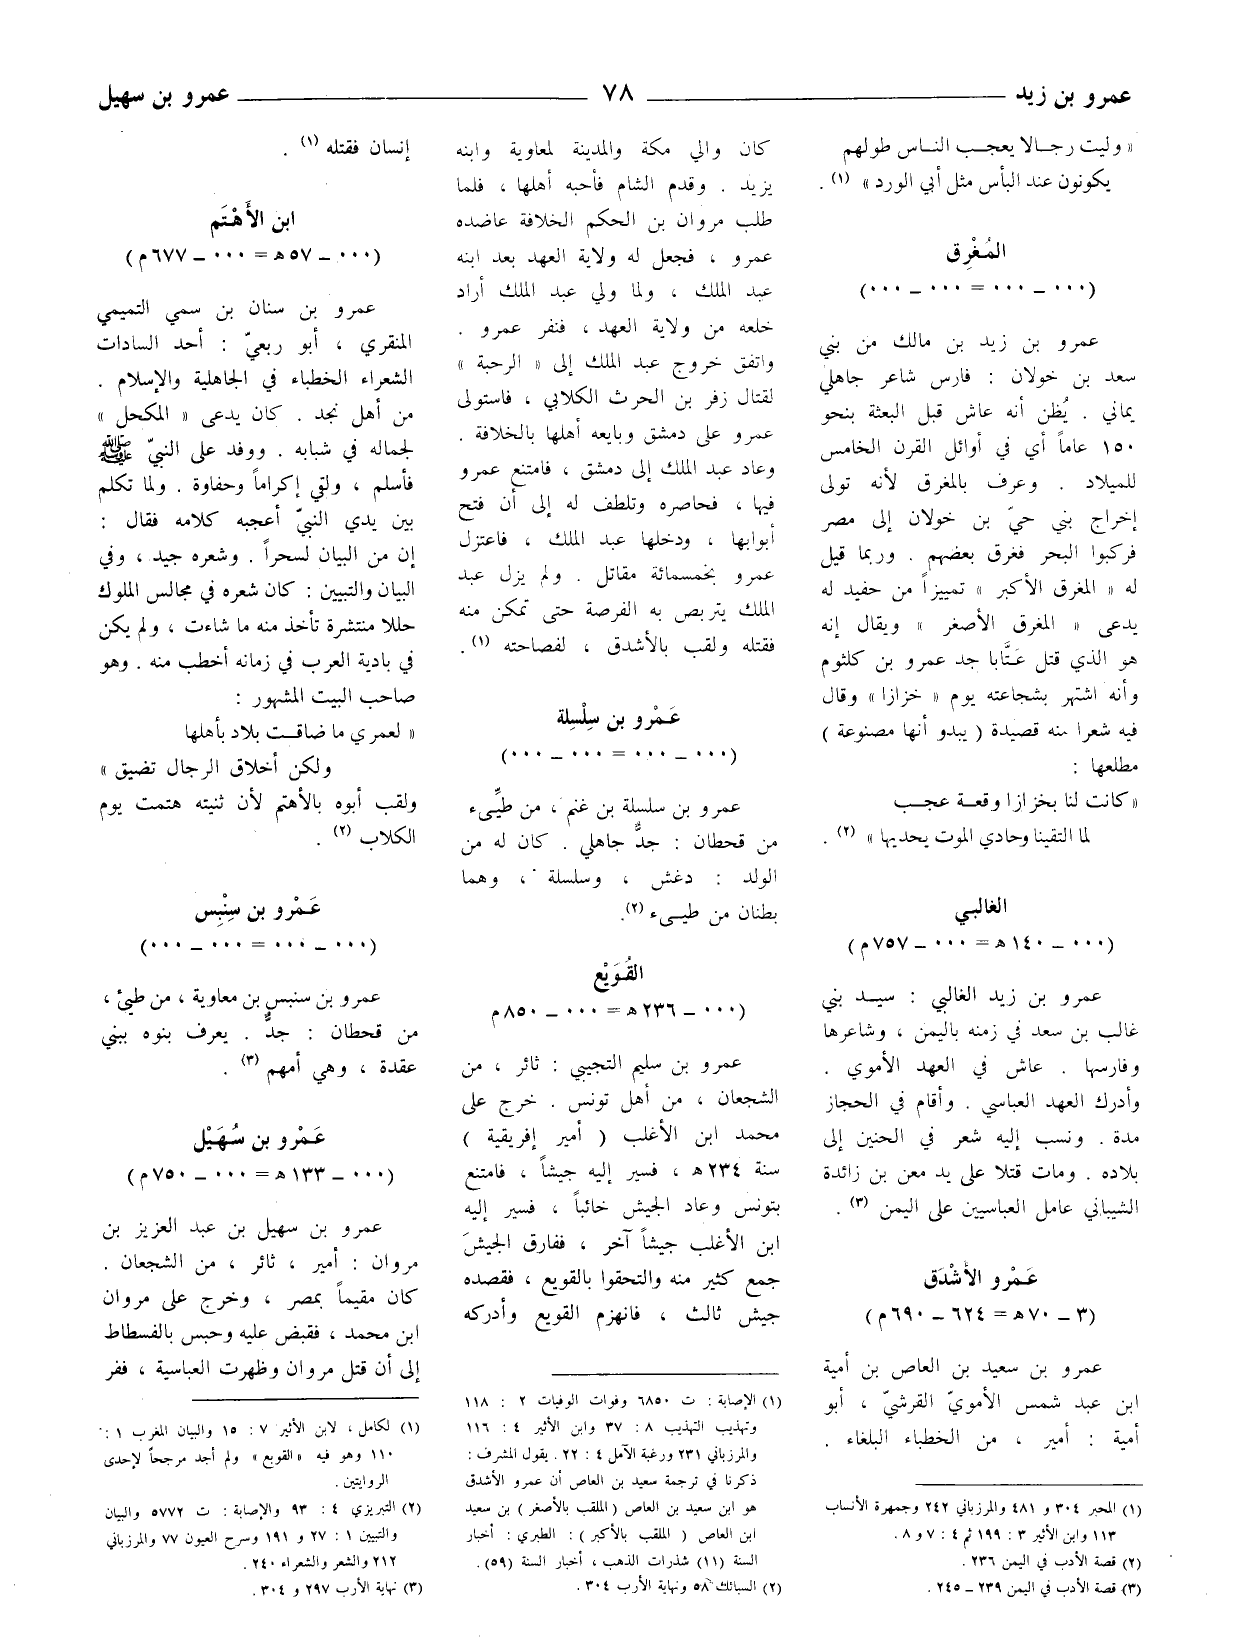 عمرو بن زيد ٧٨ عمرو بن سهيل
« وليت رجـالا يعجـب النـاس طولهم
يكونون عند البأس مثل أبي الورد » (١) .
المُغْرِق
(٠٠٠ ــ ٠٠٠ = ٠٠٠ ــ ٠٠٠)
عمرو بن زيد بن مالك من بني
سعد بن خولان : فارس شاعر جاهلي
يماني . يُظن أنه عاش قبل البعثة بنحو
١٥٠ عاماً أي في أوائل القرن الخامس
للميلاد . وعرف بالمغرق لأنه تولى
إخراج بني حيّ بن خولان إلى مصر
فركبوا البحر فغرق بعضهم . وربما قيل
له « المغرق الأكبر » تمييزاً من حفيد له
يدعى « المغرق الأصغر » ويقال إنه
هو الذي قتل عَتَّابا جد عمرو بن كلثوم
وأنه اشتهر بشجاعته يوم « خزازا » وقال
فيه شعرا منه قصيدة ( يبدو أنها مصنوعة )
مطلعها :
« كانت لنا بخزازا وقعـة عجـب
لما التقينا وحادي الموت يحديها » (٢) .
الغالبي
(٠٠٠ ــ ١٤٠ ه = ٠٠٠ ــ ٧٥٧ م)
عمرو بن زيد الغالبي : سيـد بني
غالب بن سعد في زمنه باليمن ، وشاعرها
وفارسها . عاش في العهد الأموي .
وأدرك العهد العباسي . وأقام في الحجاز
مدة . ونسب إليه شعر في الحنين إلى
بلاده . ومات قتلا على يد معن بن زائدة
الشيباني عامل العباسيين على اليمن (٣) .
عَمْرو الأَشْدَق
(٣ ــ ٧٠ ه = ٦٢٤ ــ ٦٩٠ م)
عمرو بن سعيد بن العاص بن أمية
ابن عبد شمس الأمويّ القرشيّ ، أبو
أمية : أمير ، من الخطباء البلغاء .
(١) المحبر ٣٠٤ و ٤٨١ والمرزباني ٢٤٢ وجمهرة الأنساب
١١٣ وابن الأثير ٣ : ١٩٩ ثم ٤ : ٧ و ٨ .
(٢) قصة الأدب في اليمن ٢٣٦ .
(٣) قصة الأدب في اليمن ٢٣٩ ــ ٢٤٥ .
كان والي مكة والمدينة لمعاوية وابنه
يزيد . وقدم الشام فأحبه أهلها ، فلما
طلب مروان بن الحكم الخلافة عاضده
عمرو ، فجعل له ولاية العهد بعد ابنه
عبد الملك ، ولما ولي عبد الملك أراد
خلعه من ولاية العهد ، فنفر عمرو .
واتفق خروج عبد الملك إلى « الرحبة »
لقتال زفر بن الحرث الكلابي ، فاستولى
عمرو على دمشق وبايعه أهلها بالخلافة .
وعاد عبد الملك إلى دمشق ، فامتنع عمرو
فيها ، فحاصره وتلطف له إلى أن فتح
أبوابها ، ودخلها عبد الملك ، فاعتزل
عمرو بخمسمائة مقاتل . ولم يزل عبد
الملك يتربص به الفرصة حتى تمكن منه
فقتله ولقب بالأشدق ، لفصاحته (١) .
عَمْرو بن سِلْسِلة
(٠٠٠ ــ ٠٠٠ = ٠٠٠ ــ ٠٠٠)
عمرو بن سلسلة بن غنم ، من طيِّىء
من قحطان : جدٌّ جاهلي . كان له من
الولد : دغش ، وسلسلة ، وهما
بطنان من طيـىء (٢).
القُوَيْع
(٠٠٠ ــ ٢٣٦ ه = ٠٠٠ ــ ٨٥٠ م
عمرو بن سليم التجيبي : ثائر ، من
الشجعان ، من أهل تونس . خرج على
محمد ابن الأغلب ( أمير إفريقية )
سنة ٢٣٤ ه ، فسير إليه جيشاً ، فامتنع
بتونس وعاد الجيش خائباً ، فسير إليه
ابن الأغلب جيشاً آخر ، ففارق الجيشَ
جمع كثير منه والتحقوا بالقويع ، فقصده
جيش ثالث ، فانهزم القويع وأدركه
(١) الإصابة : ت ٦٨٥٠ وفوات الوفيات ٢ : ١١٨
وتهذيب التهذيب ٨ : ٣٧ وابن الأثير ٤ : ١١٦
والمرزباني ٢٣١ ورغبة الآمل ٤ : ٢٢ . يقول المشرف :
ذكرنا في ترجمة سعيد بن العاص أن عمرو الأشدق
هو ابن سعيد بن العاص ( الملقب بالأصغر ) بن سعيد
ابن العاص ( الملقب بالأكبر ) : الطبري : أخبار
السنة (١١) شذرات الذهب ، أخبار السنة (٥٩) .
(٢) السبائك ٥٨ ونهاية الأرب ٣٠٤ .
إنسان فقتله (١) .
ابن الأَهْتَم
(٠٠٠ ــ ٥٧ ه = ٠٠٠ ــ ٦٧٧ م)
عمرو بن سنان بن سمي التميمي
المنقري ، أبو ربعيّ : أحد السادات
الشعراء الخطباء في الجاهلية والإسلام .
من أهل نجد . كان يدعى « المكحل »
لجماله في شبابه . ووفد على النبيّ ﷺ
فأسلم ، ولقي إكراماً وحفاوة . ولما تكلم
بين يدي النبيّ أعجبه كلامه فقال :
إن من البيان لسحراً . وشعره جيد ، وفي
البيان والتبيين : كان شعره في مجالس الملوك
حللا منتشرة تأخذ منه ما شاءت ، ولم يكن
في بادية العرب في زمانه أخطب منه . وهو
صاحب البيت المشهور :
« لعمري ما ضاقـت بلاد بأهلها
ولكن أخلاق الرجال تضيق »
ولقب أبوه بالأهتم لأن ثنيته هتمت يوم
الكلاب (٢) .
عَمْرو بن سِنْبِس
(٠٠٠ ــ ٠٠٠ = ٠٠٠ ــ ٠٠٠)
عمرو بن سنبس بن معاوية ، من طيئ ،
من قحطان : جدٌّ . يعرف بنوه ببني
عقدة ، وهي أمهم (٣) .
عَمْرو بن سُهَيْل
(٠٠٠ ــ ١٣٣ ه = ٠٠٠ ــ ٧٥٠ م)
عمرو بن سهيل بن عبد العزيز بن
مروان : أمير ، ثائر ، من الشجعان .
كان مقيماً بمصر ، وخرج على مروان
ابن محمد ، فقبض عليه وحبس بالفسطاط
إلى أن قتل مروان وظهرت العباسية ، ففر
(١) لكامل ، لابن الأثير ٧ : ١٥ والبيان المغرب ١ :
١١٠ وهو فيه «القويع» ولم أجد مرجحاً لإحدى
الروايتين .
(٢) التبريزي ٤ : ٩٣ والإصابة : ت ٥٧٧٢ والبيان
والتبيين ١ : ٢٧ و ١٩١ وسرح العيون ٧٧ والمرزباني
٢١٢ والشعر والشعراء ٢٤٠ .
(٣) نهاية الأرب ٢٩٧ و ٣٠٤ .